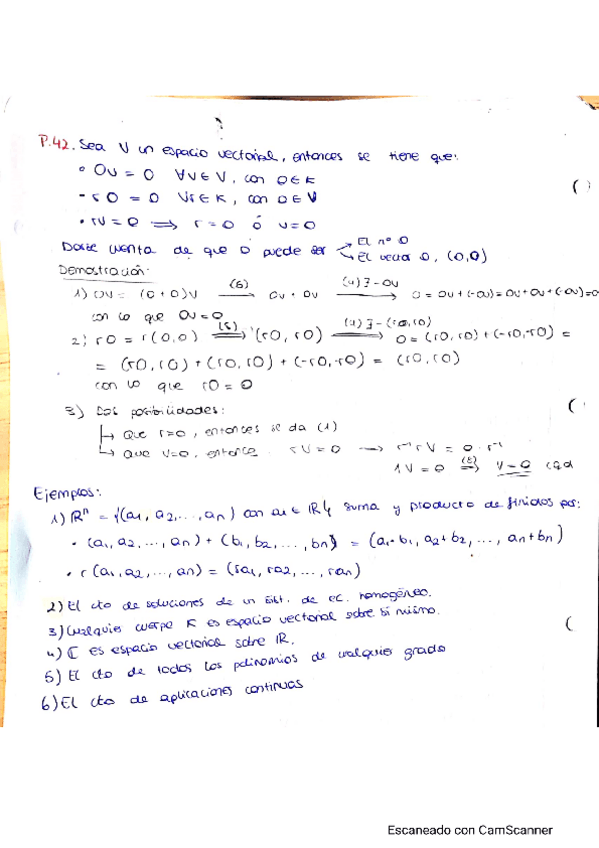 P.42. Sea V un espacio vectorial, entonces se tiene que:
• 0v = 0 ∀v∈V, con 0∈K
- r0 = 0 ∀r∈K, con 0∈V
• rv = 0 ⟹ r=0 ó v=0
Darse cuenta de que 0 puede ser
El nº 0
El vector 0, (0,0)
Demostración:
1) 0v = (0+0)v (6)→ 0v + 0v (4)∃-0v→ 0 = 0v+(-0v) = 0v+0v+(-0v)=0
con lo que 0v=0
2) r0 = r(0,0) (5)⟹ (r0, r0) (4)∃-(r0,r0)→ 0 = (r0,r0) + (-r0,-r0) =
= (r0,r0) + (r0,r0) + (-r0,-r0) = (r0,r0)
con lo que r0 = 0
3) Dos posibilidades:
↳ Que r=0, entonces se da (1)
↳ Que v=0, entonce rv=0 → r⁻¹rv = 0·r⁻¹
1v = 0 (8)⟹ v=0 cqd
Ejemplos:
1) ℝⁿ = {(a₁, a₂, ..., aₙ) con aᵢ∈ℝ} suma y producto definidos por:
• (a₁, a₂, ..., aₙ) + (b₁, b₂, ..., bₙ) = (a₁+b₁, a₂+b₂, ..., aₙ+bₙ)
• r(a₁, a₂, ..., aₙ) = (ra₁, ra₂, ..., raₙ)
2) El cto de soluciones de un sist. de ec. homogéneo.
3) Cualquier cuerpo K es espacio vectorial sobre si mismo.
4) ℂ es espacio vectorial sobre ℝ.
5) El cto de todos los polinomios de cualquier grado
6) El cto de aplicaciones continuas
Escaneado con CamScanner